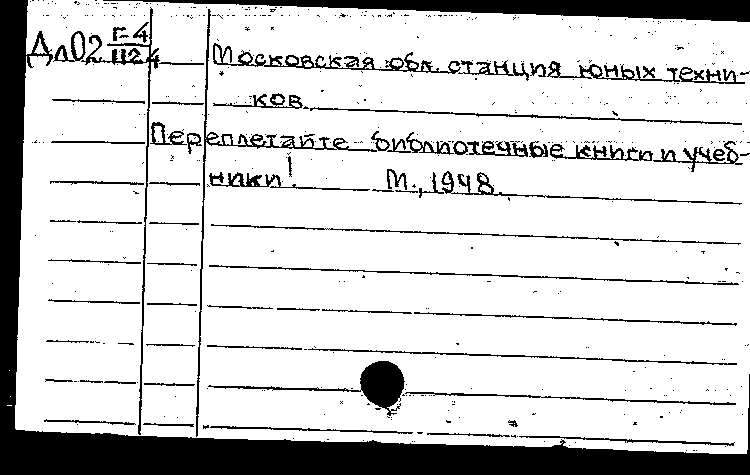 Дл02 Г-4
1124
Московская обл. станция юных техни-
ков
Переплетайте библиотечные книги и учеб-
ники! М., 1948.